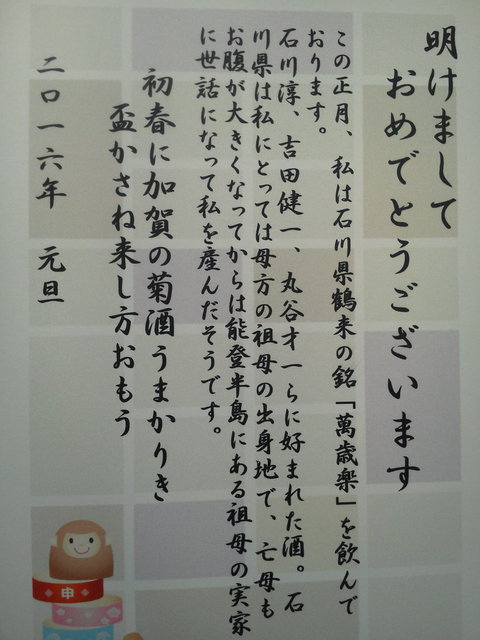 明けまして
おめでとうございます
この正月、私は石川県鶴来の銘「萬歳楽」を飲んで
おります。
石川淳、吉田健一、丸谷才一らに好まれた酒。石
川県は私にとっては母方の祖母の出身地で、亡母も
お腹が大きくなってからは能登半島にある祖母の実家
に世話になって私を産んだそうです。
初春に加賀の菊酒うまかりき
盃かさね来し方おもう
二〇一六年 元旦
申